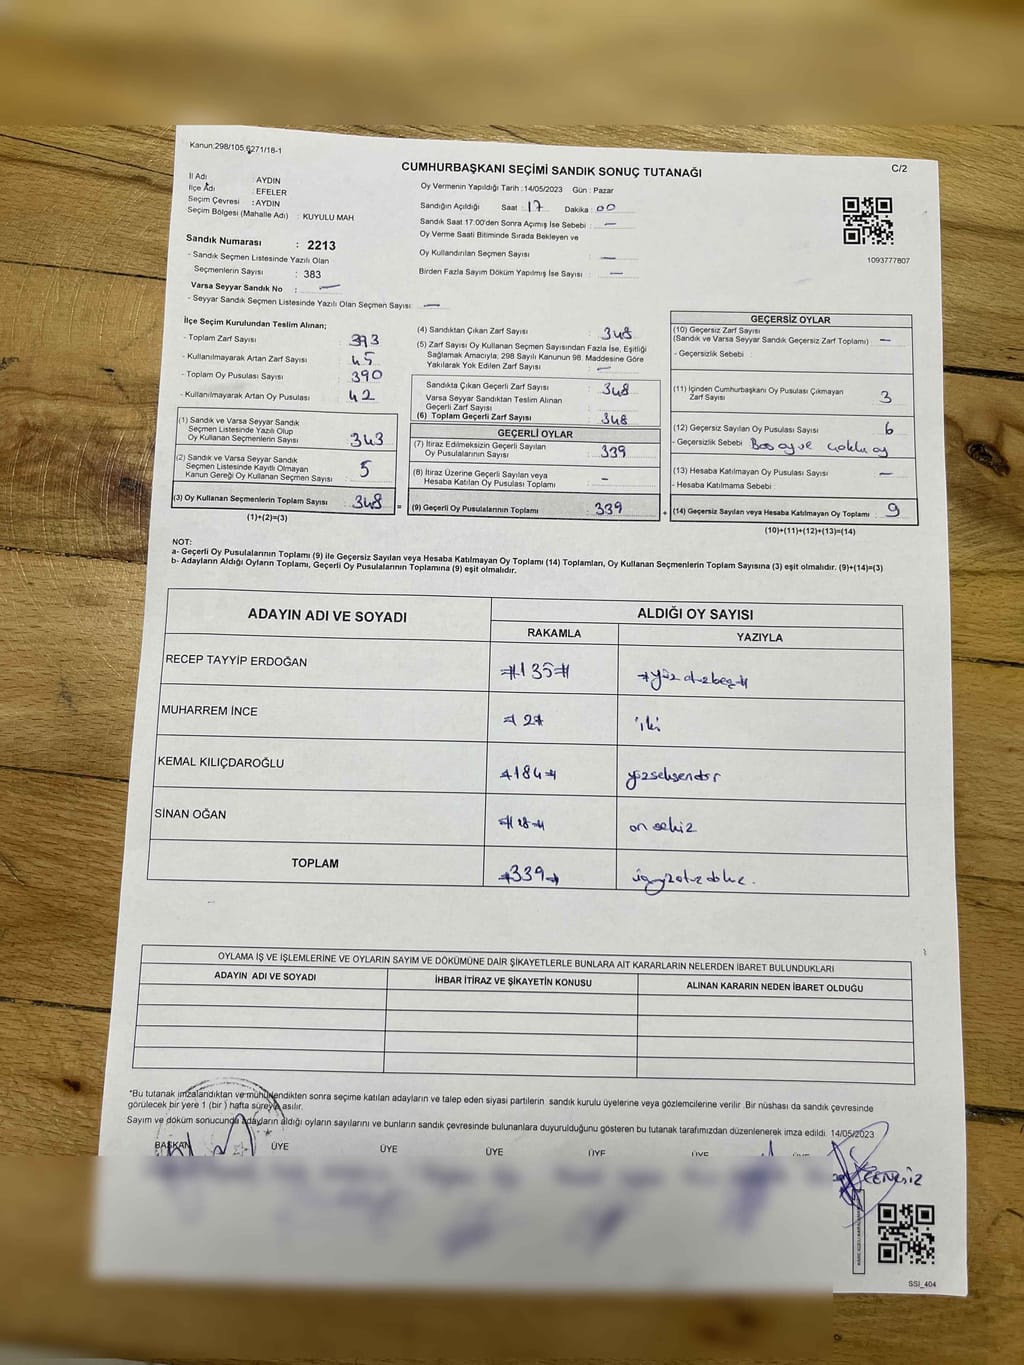 Kanun.298/105,6271/18-1
C/2
CUMHURBAŞKANI SEÇİMİ SANDIK SONUÇ TUTANAĞI
İl Adı : AYDIN
İlçe Adı : EFELER
Seçim Çevresi : AYDIN
Seçim Bölgesi (Mahalle Adı) : KUYULU MAH
Sandık Numarası : 2213
- Sandık Seçmen Listesinde Yazılı Olan
Seçmenlerin Sayısı : 383
Varsa Seyyar Sandık No : —
- Seyyar Sandık Seçmen Listesinde Yazılı Olan Seçmen Sayısı: —
Oy Vermenin Yapıldığı Tarih :14/05/2023 Gün : Pazar
Sandığın Açıldığı Saat : 17 Dakika : 00
Sandık Saat 17:00'den Sonra Açımış İse Sebebi : —
Oy Verme Saati Bitiminde Sırada Bekleyen ve
Oy Kullandırılan Seçmen Sayısı : —
Birden Fazla Sayım Döküm Yapılmış İse Sayısı : —
1093777807
İlçe Seçim Kurulundan Teslim Alınan;
- Toplam Zarf Sayısı : 393
- Kullanılmayarak Artan Zarf Sayısı : 45
- Toplam Oy Pusulası Sayısı : 390
- Kullanılmayarak Artan Oy Pusulası : 42
(1) Sandık ve Varsa Seyyar Sandık
Seçmen Listesinde Yazılı Olup
Oy Kullanan Seçmenlerin Sayısı : 343
(2) Sandık ve Varsa Seyyar Sandık
Seçmen Listesinde Kayıtlı Olmayan
Kanun Gereği Oy Kullanan Seçmen Sayısı : 5
(3) Oy Kullanan Seçmenlerin Toplam Sayısı : 348 =
(1)+(2)=(3)
(4) Sandıktan Çıkan Zarf Sayısı : 348
(5) Zarf Sayısı Oy Kullanan Seçmen Sayısından Fazla İse, Eşitliği
Sağlamak Amacıyla, 298 Sayılı Kanunun 98. Maddesine Göre
Yakılarak Yok Edilen Zarf Sayısı : —
Sandıkta Çıkan Geçerli Zarf Sayısı : 348
Varsa Seyyar Sandıktan Teslim Alınan
Geçerli Zarf Sayısı :
(6) Toplam Geçerli Zarf Sayısı : 348
GEÇERLİ OYLAR
(7) İtiraz Edilmeksizin Geçerli Sayılan
Oy Pusulalarının Sayısı : 339
(8) İtiraz Üzerine Geçerli Sayılan veya
Hesaba Katılan Oy Pusulası Toplamı : -
(9) Geçerli Oy Pusulalarının Toplamı : 339 +
GEÇERSİZ OYLAR
(10) Geçersiz Zarf Sayısı
(Sandık ve Varsa Seyyar Sandık Geçersiz Zarf Toplamı) : —
- Geçersizlik Sebebi :
(11) İçinden Cumhurbaşkanı Oy Pusulası Çıkmayan
Zarf Sayısı : 3
(12) Geçersiz Sayılan Oy Pusulası Sayısı : 6
- Geçersizlik Sebebi : Boş oy ve çoklu oy
(13) Hesaba Katılmayan Oy Pusulası Sayısı : —
- Hesaba Katılmama Sebebi :
(14) Geçersiz Sayılan veya Hesaba Katılmayan Oy Toplamı : 9
(10)+(11)+(12)+(13)=(14)
NOT:
a- Geçerli Oy Pusulalarının Toplamı (9) ile Geçersiz Sayılan veya Hesaba Katılmayan Oy Toplamı (14) Toplamları, Oy Kullanan Seçmenlerin Toplam Sayısına (3) eşit olmalıdır. (9)+(14)=(3)
b- Adayların Aldığı Oyların Toplamı, Geçerli Oy Pusulalarının Toplamına (9) eşit olmalıdır.
ADAYIN ADI VE SOYADI
ALDIĞI OY SAYISI
RAKAMLA YAZIYLA
RECEP TAYYİP ERDOĞAN #135# #yüz otuzbeş#
MUHARREM İNCE #2# iki
KEMAL KILIÇDAROĞLU #184# yüzseksendört
SİNAN OĞAN #18# on sekiz
TOPLAM #339# üçyüzotuzdokuz.
OYLAMA İŞ VE İŞLEMLERİNE VE OYLARIN SAYIM VE DÖKÜMÜNE DAİR ŞİKAYETLERLE BUNLARA AİT KARARLARIN NELERDEN İBARET BULUNDUKLARI
ADAYIN ADI VE SOYADI İHBAR İTİRAZ VE ŞİKAYETİN KONUSU ALINAN KARARIN NEDEN İBARET OLDUĞU
*Bu tutanak imzalandıktan ve mühürlendikten sonra seçime katılan adayların ve talep eden siyasi partilerin sandık kurulu üyelerine veya gözlemcilerine verilir .Bir nüshası da sandık çevresinde
görülecek bir yere 1 (bir ) hafta süreyle asılır.
Sayım ve döküm sonucunda adayların aldığı oyların sayılarını ve bunların sandık çevresinde bulunanlara duyurulduğunu gösteren bu tutanak tarafımızdan düzenlenerek imza edildi. 14/05/2023
BAŞKAN ÜYE ÜYE ÜYE ÜYE ÜYE ÜYE
SSI_404